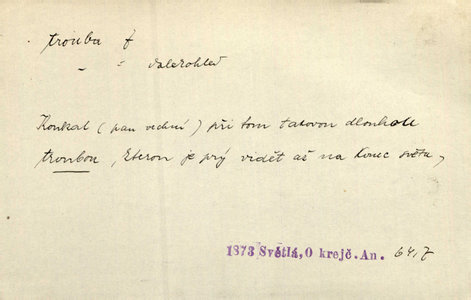 trouba f
" " dalekohled
Koukal (pan vrchní) při tom takovou dlouhou
troubou, kterou je prý vidět až na konec světa,
1873 Světlá, O krejč. An. 64,7